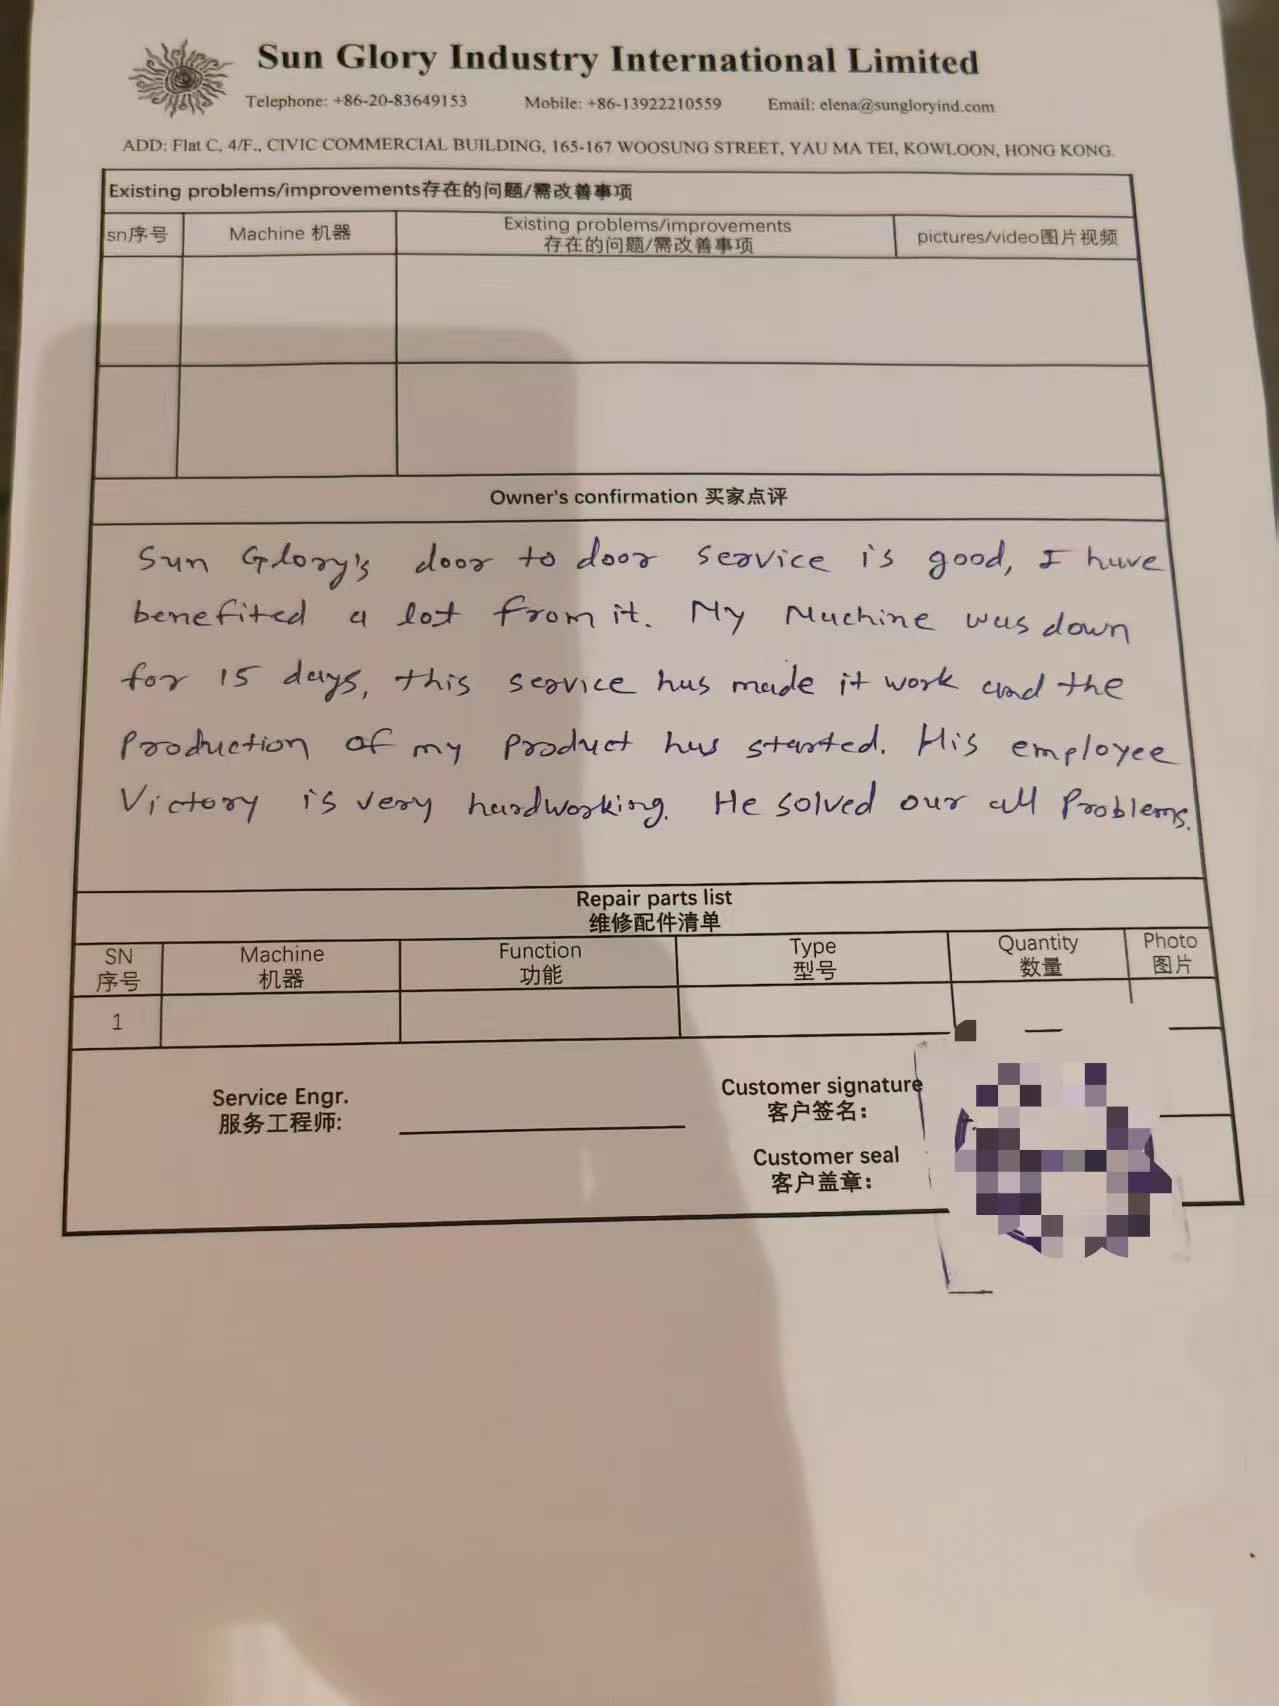 Sun Glory Industry International Limited
Telephone: +86-20-83649153 Mobile: +86-13922210559 Email: elena@sungloryind.com
ADD: Flat C, 4/F., CIVIC COMMERCIAL BUILDING, 165-167 WOOSUNG STREET, YAU MA TEI, KOWLOON, HONG KONG.
Existing problems/improvements存在的问题/需改善事项
sn序号 Machine 机器 Existing problems/improvements pictures/video图片视频
存在的问题/需改善事项
Owner's confirmation 买家点评
Sun Glory's door to door service is good, I have
benefited a lot from it. My Machine was down
for 15 days, this service has made it work and the
Production of my Product has started. His employee
Victory is very hardworking. He solved our all Problems.
Repair parts list
维修配件清单
SN Machine Function Type Quantity Photo
序号 机器 功能 型号 数量 图片
1
Service Engr. Customer signature
服务工程师: 客户签名:
Customer seal
客户盖章: